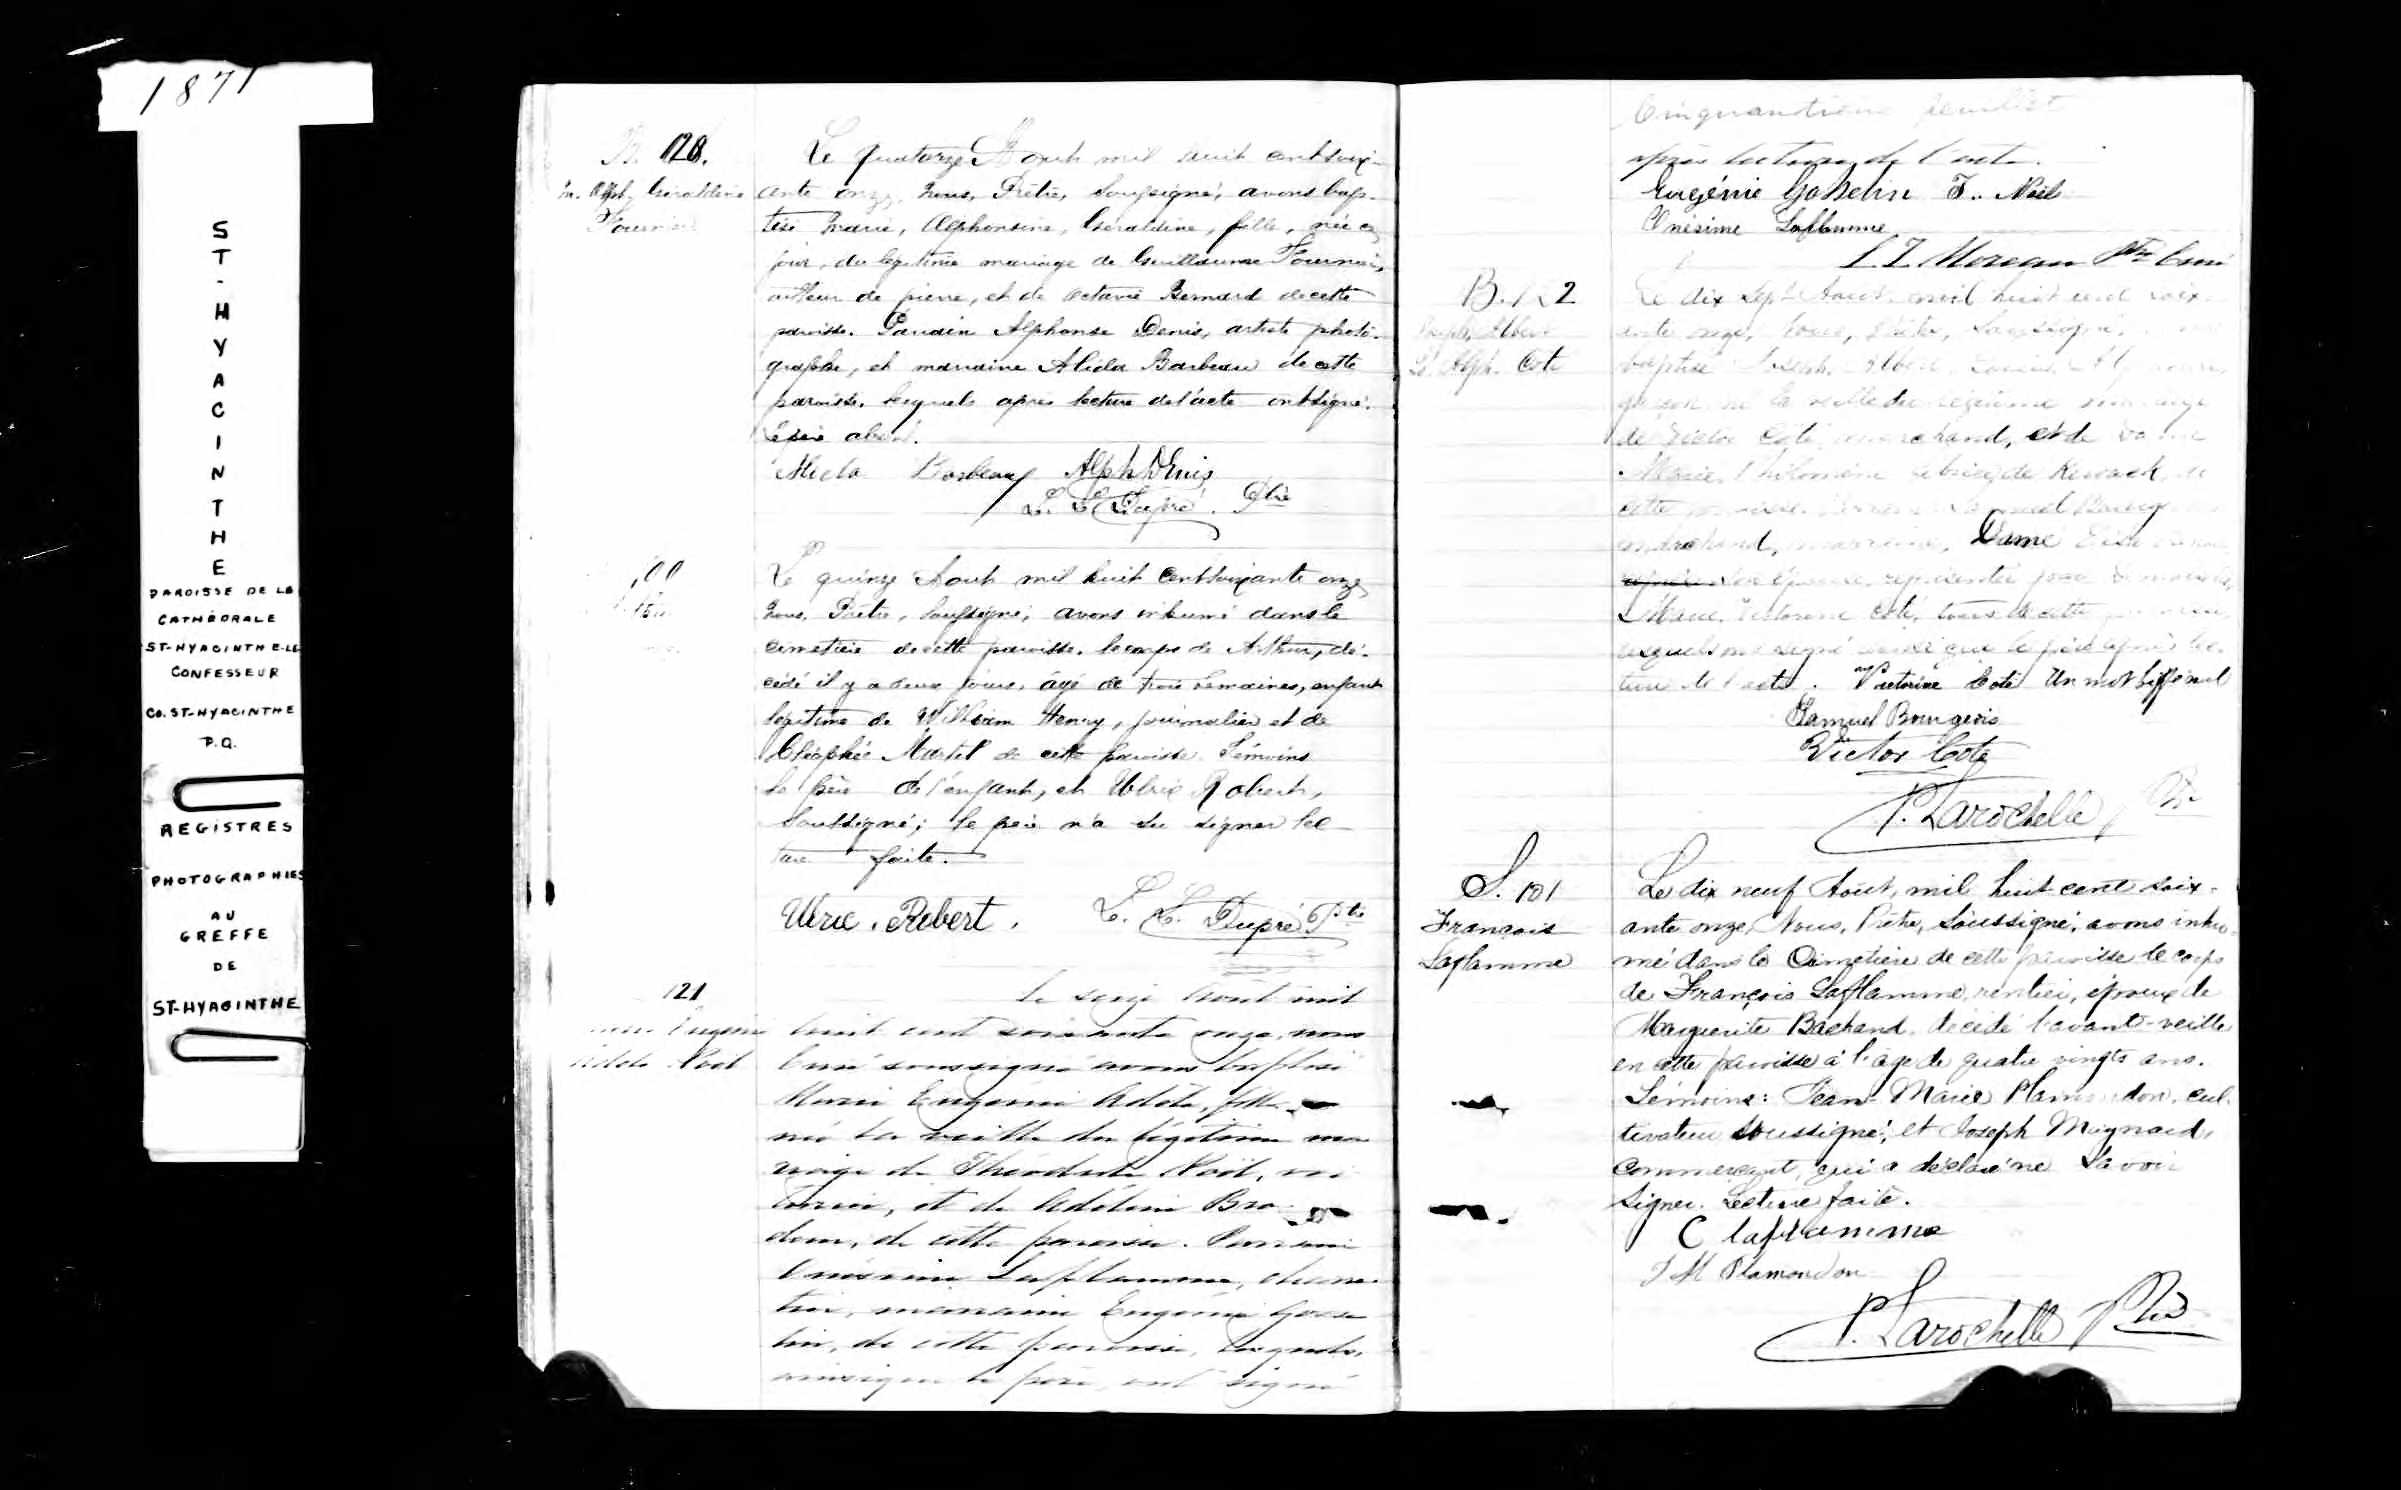 1871
S
T
-
H
Y
A
C
I
N
T
H
E
PAROISSE DE LA
CATHÉDRALE
ST-HYACINTHE-LE
CONFESSEUR
CO. ST-HYACINTHE
P.Q.
REGISTRES
PHOTOGRAPHIES
AU
GREFFE
DE
ST-HYACINTHE
B. 120.
M. Alph. Géraldine
Fournier
Le quatorze Août mil huit cent soix-
ante onze, Nous, Prêtre, soussigné, avons bap-
tisé Marie, Alphonsine, Géraldine, fille, née ce
jour, du légitime mariage de Guillaume Fournier,
de pierre, et de Octavie Bernard de cette
paroisse. Parrain Alphonse Denis, artiste photo-
graphe, et marraine Alida Barbeau de cette
paroisse, lesquels après lecture de l'acte ont signé.
Le père absent.
Alida Barbeau Alph Denis
L. L. Dupré. Ptre
Le quinze Août mil huit cent soixante onze,
Nous, Prêtre, soussigné, avons inhumé dans le
cimetière de cette paroisse, le corps de Arthur, dé-
cédé il y a deux jours, âgé de trois semaines, enfant
légitime de William Henry, journalier et de
Cléophée Martel de cette paroisse. Témoins
le père de l'enfant, et Ulric Robert,
soussigné; le père n'a su signer lec-
ture faite.
Ulric. Robert. L. L. Dupré Ptre
121
Eugénie
Adèle Noël
Le seize Août mil
huit cent soixante onze, nous
Curé soussigné avons baptisé
Marie Eugénie Adèle, fille
née la veille du légitime ma-
riage de Théodule Noël,
et de Adéline
de cette paroisse. Parrain
Onésime Laflamme,
marraine Eugénie Gosse-
lin, de cette paroisse, lesquels,
ainsi que le père, ont signé
Cinquantième feuillet
après lecture de l'acte.
Eugénie Gosselin T.. Noël
Onésime Laflamme
Moreau Ptre Curé
B. 122
Joseph, Albert
Ls. Alph. Coté
Le dix sept Août, mil huit cent soix-
ante onze, Nous, Prêtre, Soussigné,
baptisé Joseph, Albert
garçon né la veille du légitime mariage
de Victor Coté, marchand, et de Dame
Marie, Philomène de Kerouack, de
cette paroisse. Parrain Samuel Bourgeois
marchand, marraine, Dame
son épouse, représentée par Demoiselle
Marie, Victorine Coté, tous de cette paroisse
lesquels ont signé ainsi que le père après lec-
ture de l'acte. Victorine Coté Un mot biffé nul
Samuel Bourgeois
Victor Coté
P. Larochelle Ptre
S. 101
François
Laflamme
Le dix neuf Août, mil huit cent soix-
ante onze, Nous, Prêtre, Soussigné, avons inhu-
mé dans le Cimetière de cette paroisse le corps
de François Laflamme, rentier, époux de
Marguerite Bachand, décédé l'avant-veille
en cette paroisse à l'âge de quatre vingts ans.
Témoins: Jean-Marie Plamondon, cul-
tivateur soussigné, et Joseph Maynard,
commerçant, qui a déclaré ne savoir
signer. Lecture faite.
C laflamme
J M Plamondon
P. Larochelle Ptre